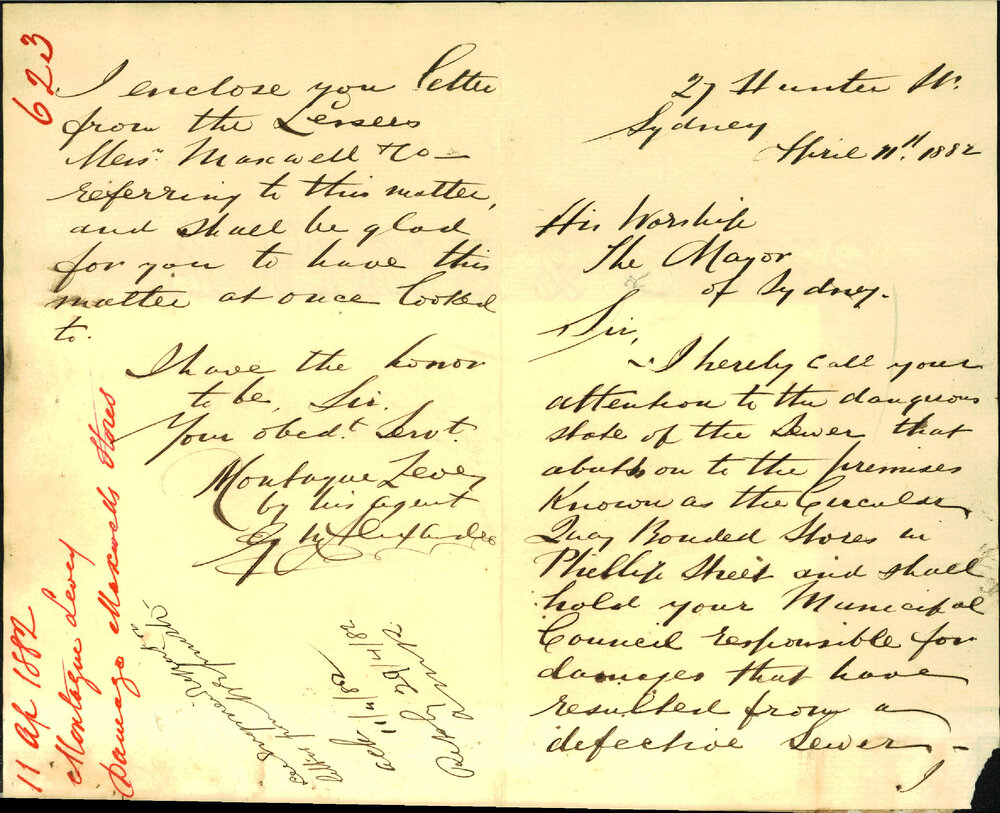 27 Hunter St.
Sydney
April 11th. 1882
His Worship
The Mayor
of Sydney.
Sir,
I hereby call your
attention to the dangerous
state of the Sewer that
abutts on to the premises
Known as the Circular
Quay Bonded Stores in
Phillip Street and shall
hold your Municipal
Council responsible for
damages that have
resulted from a
defective Sewer –
I
I enclose you letter
from the Lessees
Messrs. Maxwell & Co –
referring to this matter,
and shall be glad
for you to have this
matter at once looked
to.
I have the honor
to be, Sir.
Your obedt. Servt.
Montague Levey
by his agent
623
11 Ap 1882
Montague Levey
Damage Maxwells Stores
ack 11/4/82
29/4/82